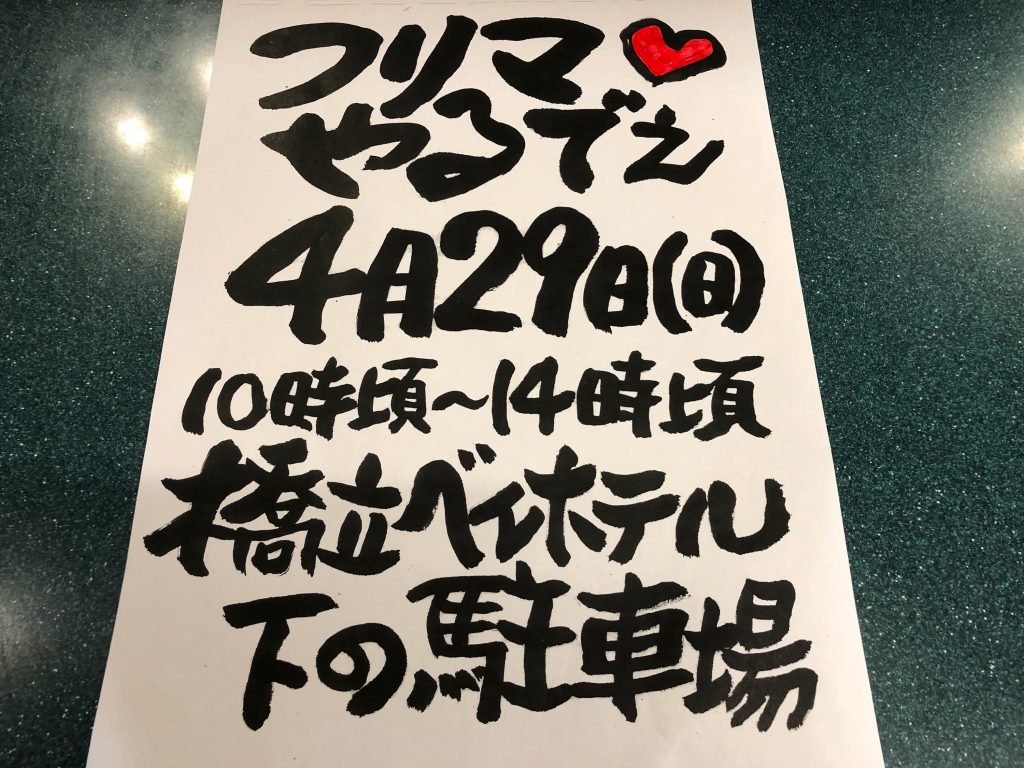 フリマ
やるでぇ
4月29日(日)
10時頃~14時頃
橋立ベイホテル
下の駐車場